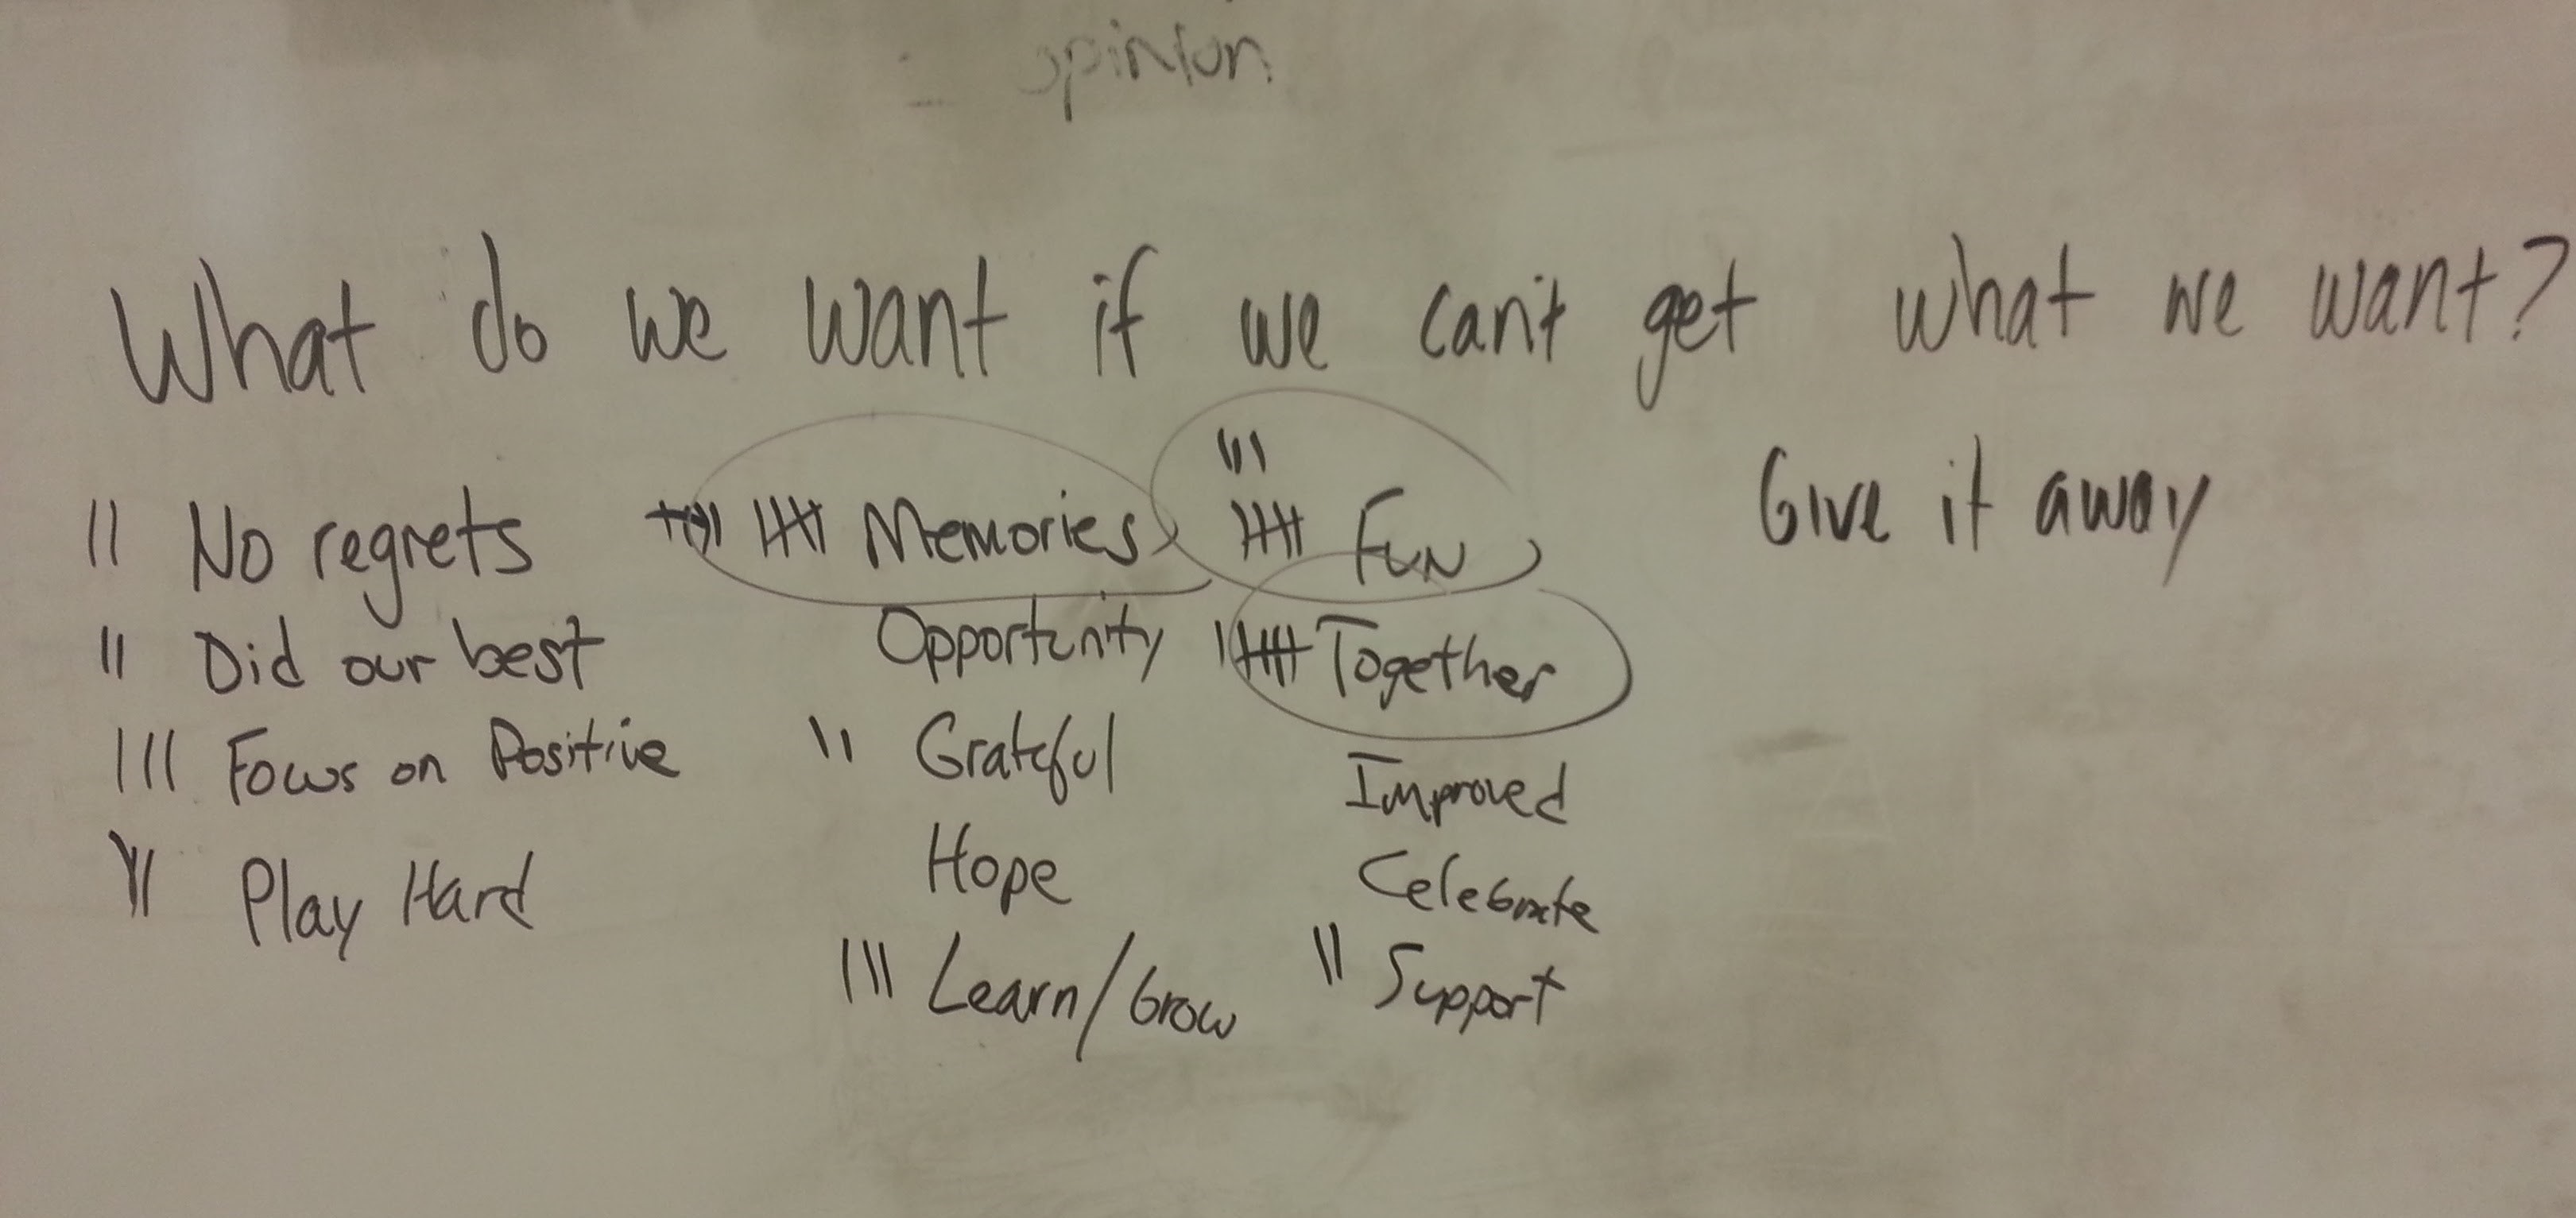 opinion
What do we want if we can't get what we want?
Give it away
No regrets
Did our best
Focus on Positive
Play Hard
Memories
Opportunity
Grateful
Hope
Learn/Grow
Fun
Together
Improved
Celebrate
Support